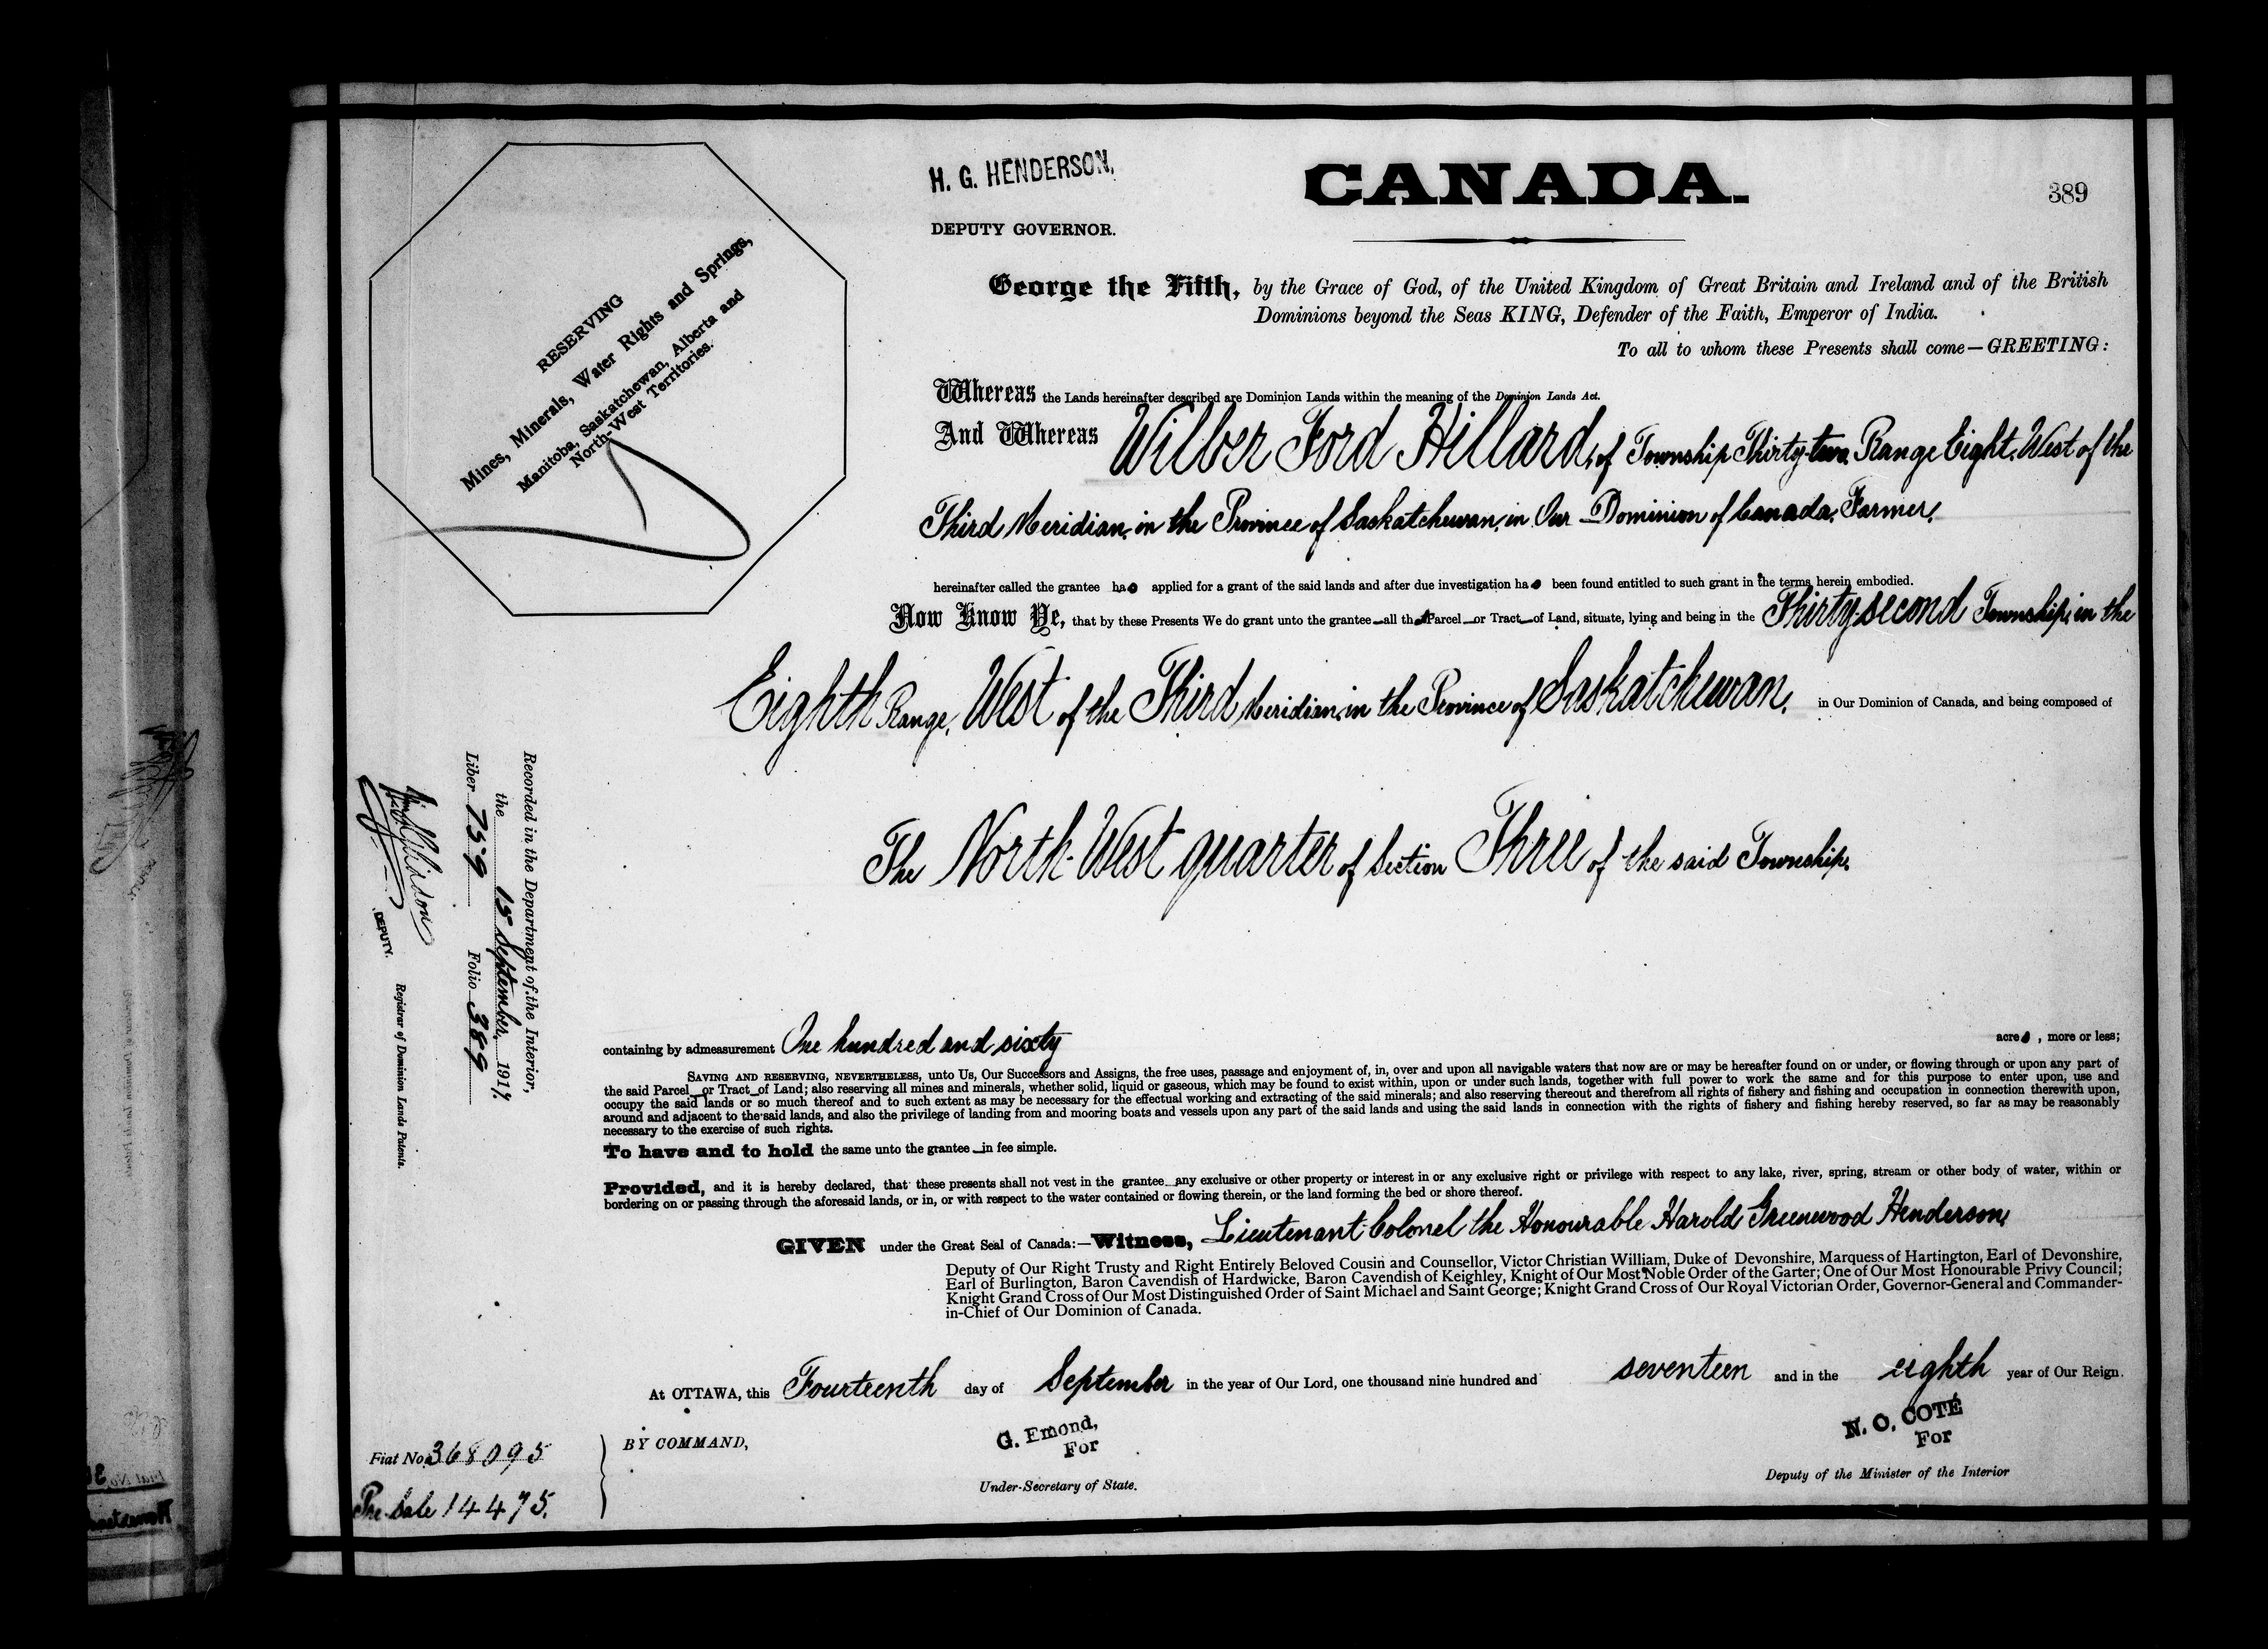 H. G. HENDERSON,
DEPUTY GOVERNOR.
CANADA.
389
RESERVING
Mines, Minerals, Water Rights and Springs,
Manitoba, Saskatchewan, Alberta and
North-West Territories.
George the Fifth, by the Grace of God, of the United Kingdom of Great Britain and Ireland and of the British
Dominions beyond the Seas KING, Defender of the Faith, Emperor of India.
To all to whom these Presents shall come—GREETING:
Whereas the Lands hereinafter described are Dominion Lands within the meaning of the Dominion Lands Act.
And Whereas Wilber Ford Hillard, of Township Thirty-two, Range Eight, West of the
Third Meridian, in the Province of Saskatchewan, in Our Dominion of Canada, Farmer,
hereinafter called the grantee has applied for a grant of the said lands and after due investigation has been found entitled to such grant in the terms herein embodied.
Now Know Ye, that by these Presents We do grant unto the grantee—all that Parcel—or Tract—of Land, situate, lying and being in the Thirty-second Township, in the
Eighth Range, West of the Third Meridian, in the Province of Saskatchewan, in Our Dominion of Canada, and being composed of
The North-West quarter of Section Three of the said Township,
containing by admeasurement One hundred and sixty acres, more or less;
SAVING AND RESERVING, NEVERTHELESS, unto Us, Our Successors and Assigns, the free uses, passage and enjoyment of, in, over and upon all navigable waters that now are or may be hereafter found on or under, or flowing through or upon any part of
the said Parcel—or Tract—of Land; also reserving all mines and minerals, whether solid, liquid or gaseous, which may be found to exist within, upon or under such lands, together with full power to work the same and for this purpose to enter upon, use and
occupy the said lands or so much thereof and to such extent as may be necessary for the effectual working and extracting of the said minerals; and also reserving thereout and therefrom all rights of fishery and fishing and occupation in connection therewith upon,
around and adjacent to the said lands, and also the privilege of landing from and mooring boats and vessels upon any part of the said lands and using the said lands in connection with the rights of fishery and fishing hereby reserved, so far as may be reasonably
necessary to the exercise of such rights.
To have and to hold the same unto the grantee—in fee simple.
Provided, and it is hereby declared, that these presents shall not vest in the grantee—any exclusive or other property or interest in or any exclusive right or privilege with respect to any lake, river, spring, stream or other body of water, within or
bordering on or passing through the aforesaid lands, or in, or with respect to the water contained or flowing therein, or the land forming the bed or shore thereof.
GIVEN under the Great Seal of Canada:—Witness, Lieutenant-Colonel the Honourable Harold Greenwood Henderson,
Deputy of Our Right Trusty and Right Entirely Beloved Cousin and Counsellor, Victor Christian William, Duke of Devonshire, Marquess of Hartington, Earl of Devonshire,
Earl of Burlington, Baron Cavendish of Hardwicke, Baron Cavendish of Keighley, Knight of Our Most Noble Order of the Garter; One of Our Most Honourable Privy Council;
Knight Grand Cross of Our Most Distinguished Order of Saint Michael and Saint George; Knight Grand Cross of Our Royal Victorian Order, Governor-General and Commander-
in-Chief of Our Dominion of Canada.
At OTTAWA, this Fourteenth day of September in the year of Our Lord, one thousand nine hundred and seventeen and in the eighth year of Our Reign.
BY COMMAND,
G. Emond,
For
Under-Secretary of State.
N. O. COTÉ
For
Deputy of the Minister of the Interior
Fiat No. 368095
Pre. Sale 14475.
Recorded in the Department of the Interior,
the 15 September, 1917.
Liber 759 Folio 389
DEPUTY.
Registrar of Dominion Lands Patents.